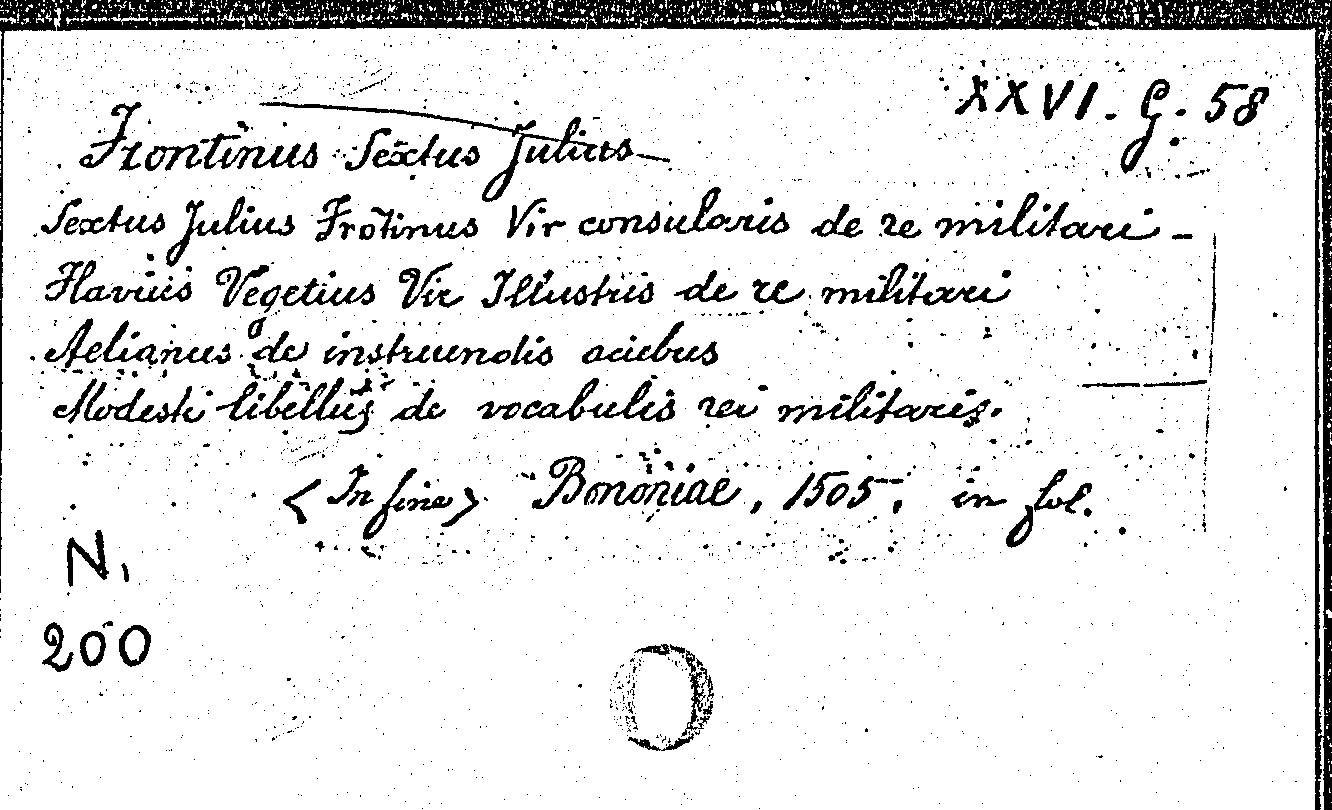 XXVI. G. 58
Frontinus Sextus Julius
Sextus Julius Frōtinus Vir consularis de re militari -
Flavius Vegetius Vir Illustris de re militari
Aelianus de instruendis aciebus
Modesti libellus de vocabulis rei militaris.
<In fine> Bononiae, 1505, in fol.
N.
200